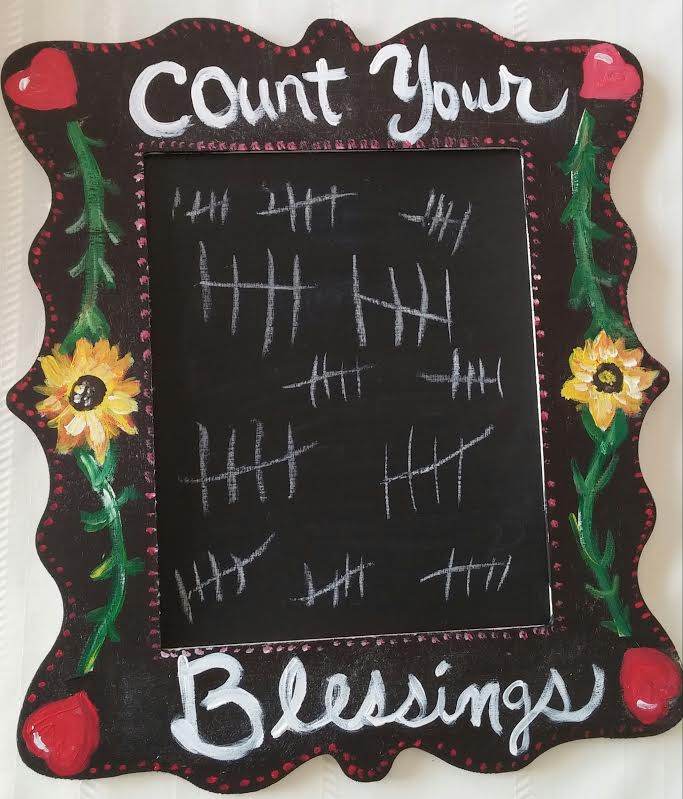 Count Your
Blessings